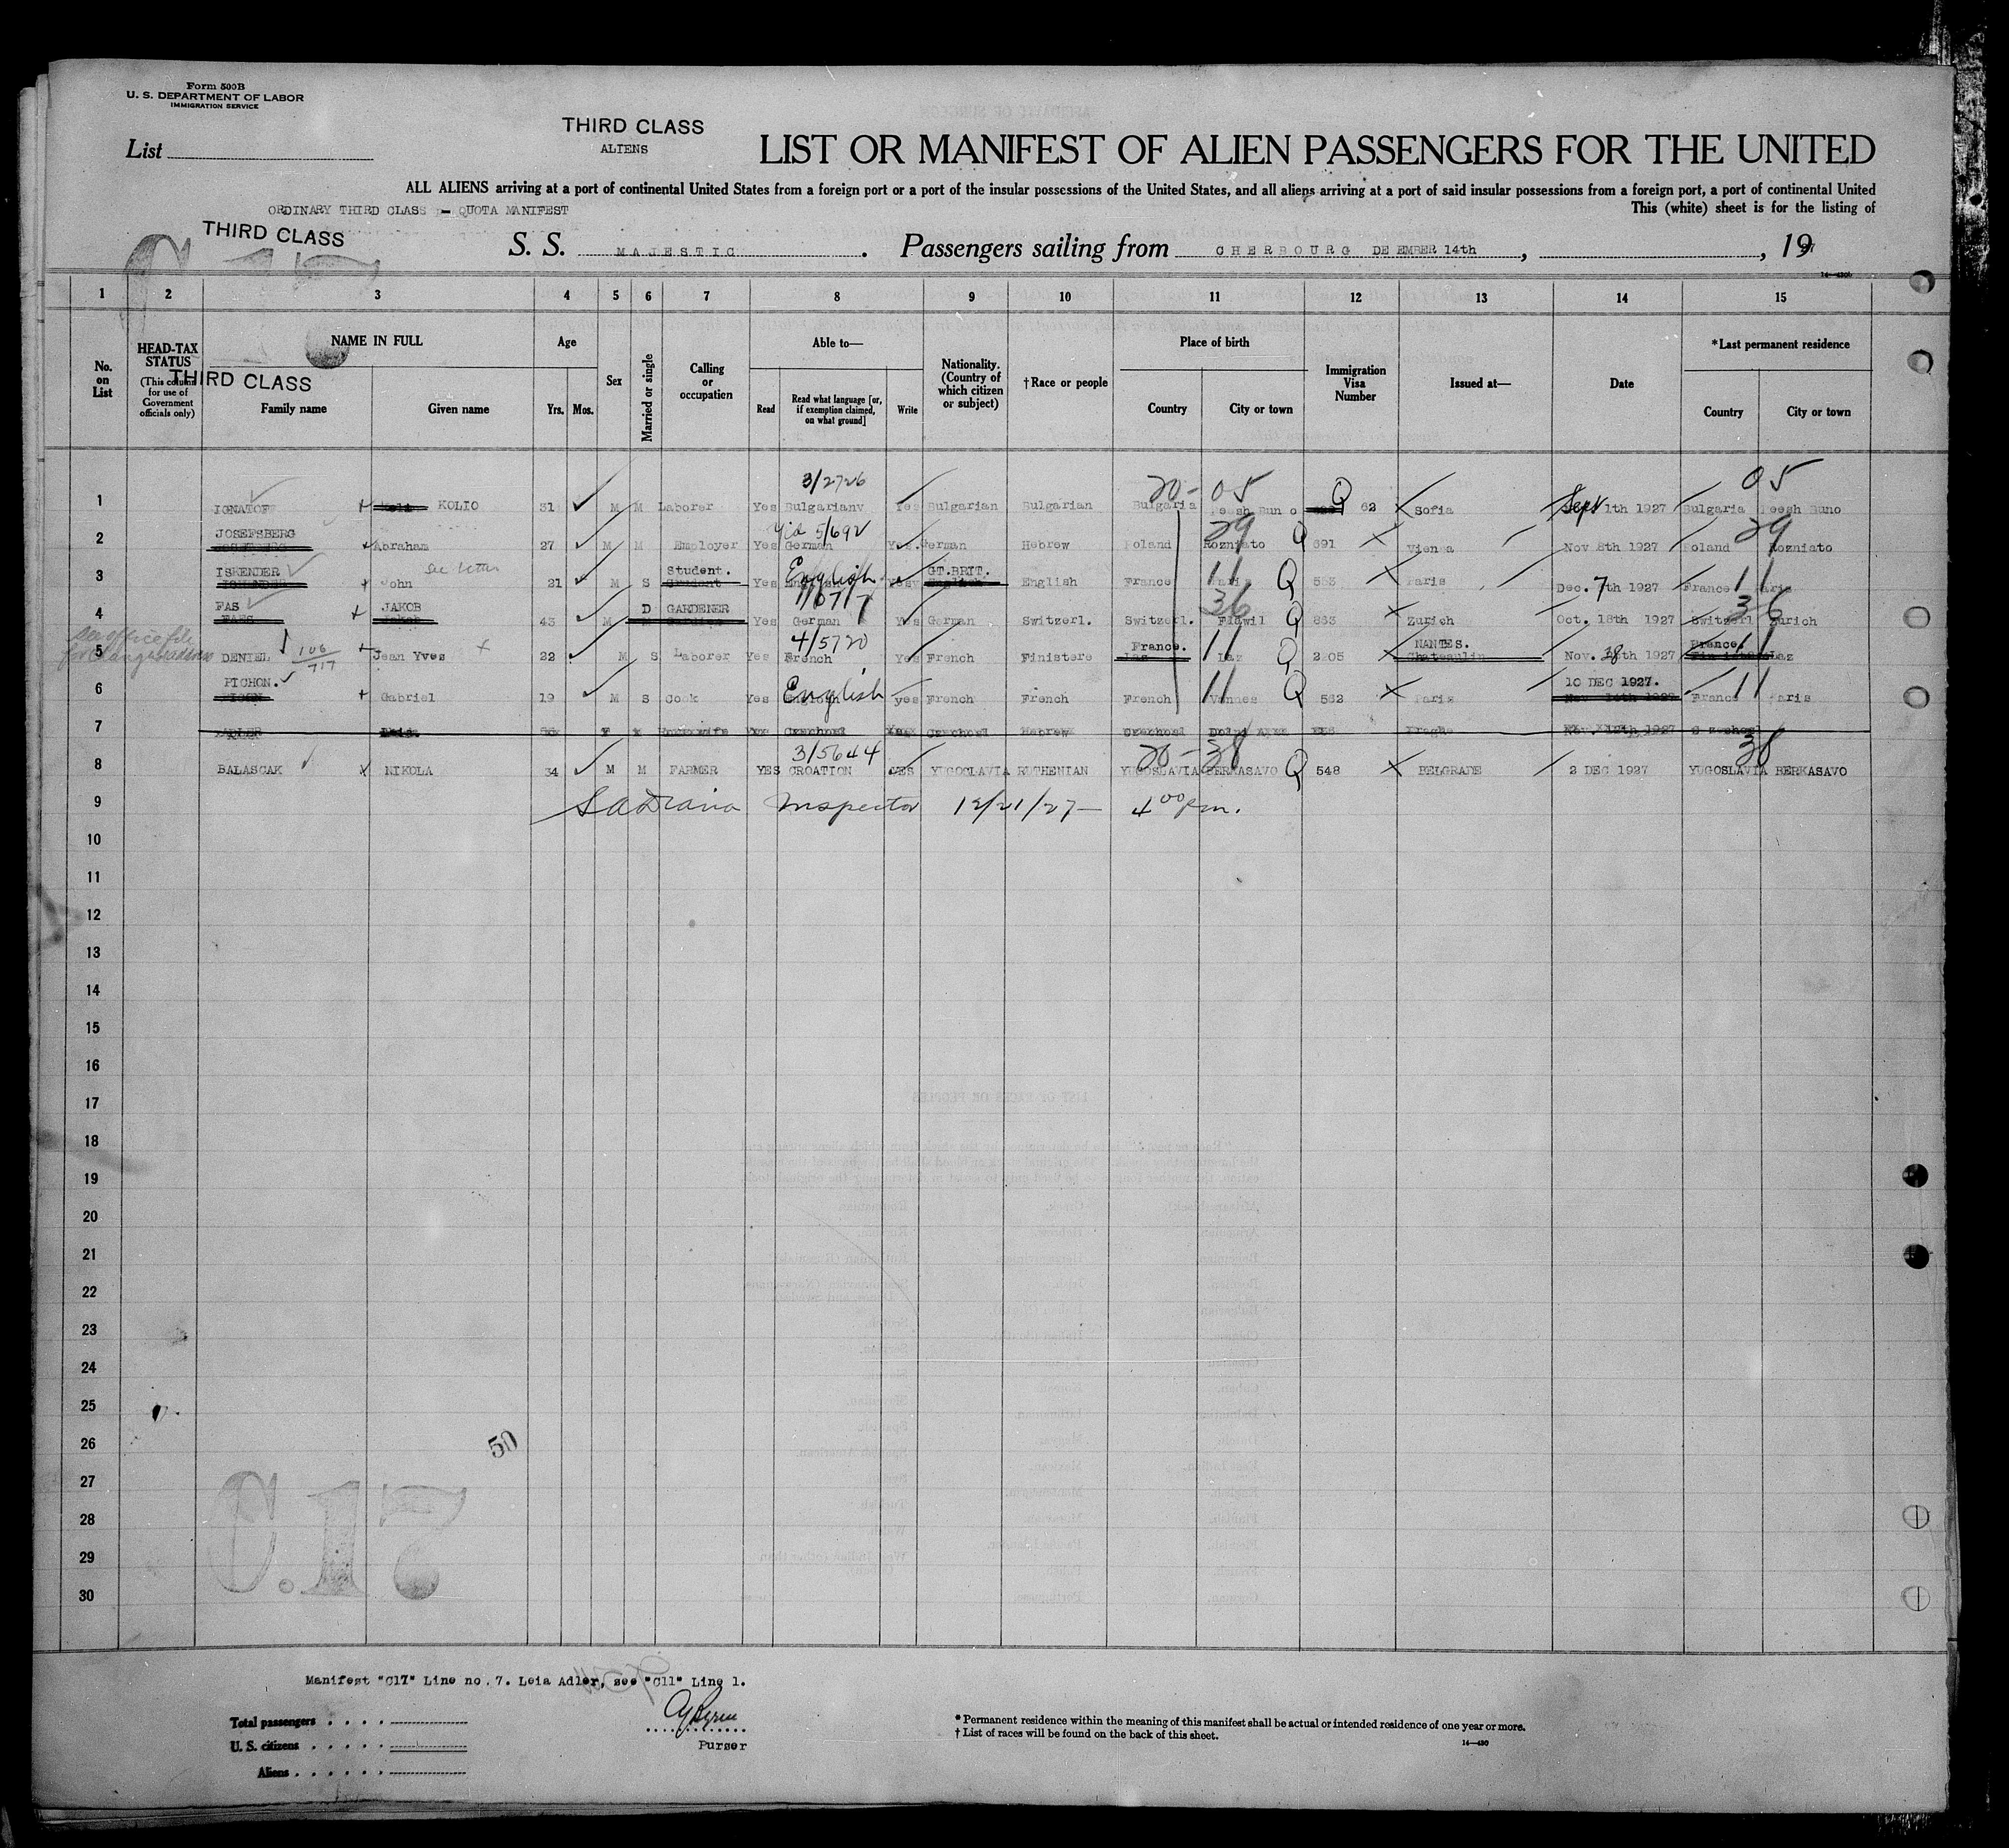 Form 500B
U. S. DEPARTMENT OF LABOR
IMMIGRATION SERVICE
List
THIRD CLASS
ALIENS
LIST OR MANIFEST OF ALIEN PASSENGERS FOR THE UNITED
ALL ALIENS arriving at a port of continental United States from a foreign port or a port of the insular possessions of the United States, and all aliens arriving at a port of said insular possessions from a foreign port, a port of continental United
This (white) sheet is for the listing of
ORDINARY THIRD CLASS - QUOTA MANIFEST
THIRD CLASS
S. S. MAJESTIC. Passengers sailing from CHERBOURG DE EMBER 14th, , 1927
1 2 3 4 5 6 7 8 9 10 11 12 13 14 15
No. on List
HEAD-TAX STATUS (This column for use of Government officials only)
THIRD CLASS
NAME IN FULL
Family name Given name
Age
Yrs. Mos.
Sex
Married or single
Calling or occupation
Able to—
Read Read what language [or, if exemption claimed, on what ground] Write
Nationality. (Country of which citizen or subject)
†Race or people
Place of birth
Country City or town
Immigration Visa Number
Issued at—
Date
*Last permanent residence
Country City or town
3/2726 20- 05 Q 05
1 IGNATOF KOLIO 31 M M Laborer Yes Bulgarianv Yes Bulgarian Bulgarian Bulgaria Peesh Bun o 62 Sofia Sept 1th 1927 Bulgaria Peesh Buno
JOSEFSBERG Yid 5/692 29 29
2 Abraham 27 M M Employer Yes German Yes. German Hebrew Poland Rozniato Q 691 Vienna Nov 8th 1927 Poland Rozniato
ISKENDER See letter Student. English GT.BRIT. 11 11
3 John 21 M S Student Yes English Yesv English English France Paris Q 553 Paris Dec. 7th 1927 France Paris
FAS JAKOB D GARDENER 1/6717 36 36
4 FAES Jakob 43 M M Yes German Yes German Switzerl. Switzerl. Flawil Q 863 Zurich Oct. 18th 1927 Switzerl Zurich
See office file
4/5720 France. 11 NANTES. France. 11
5 DENIEL 106/717 Jean Yves 22 M S Laborer Yes French Yes French Finistere Laz Laz Q 2205 Chateaulin Nov. 18th 1927 Finistere Laz
PICHON. English 11 10 DEC 1927. 11
6 Gabriel 19 M S Cook Yes English yes French French French Vannes Q 562 Paris Nov 14th 1927 France Paris
7 ADLER Leia F Housewife Czechosl Czechosl Hebrew Czechosl Prague 1927
3/5644 20- 38 38
8 BALASCAK NIKOLA 34 M M FARMER YES CROATION YES YUGOCLAVIA RUTHENIAN YUGOSLAVIA BERKASAVO Q 548 BELGRADE 2 DEC 1927 YUGOSLAVIA BERKASAVO
9 Inspector 12/21/27— 4 00 pm.
10
11
12
13
14
15
16
17
18
19
20
21
22
23
24
25
26
50
27
28
29
C.17
30
Manifest "C17" Line no. 7. Leia Adler, see "C11" Line 1.
Total passengers
U. S. citizens
Aliens
Purser
* Permanent residence within the meaning of this manifest shall be actual or intended residence of one year or more.
† List of races will be found on the back of this sheet.
14—430